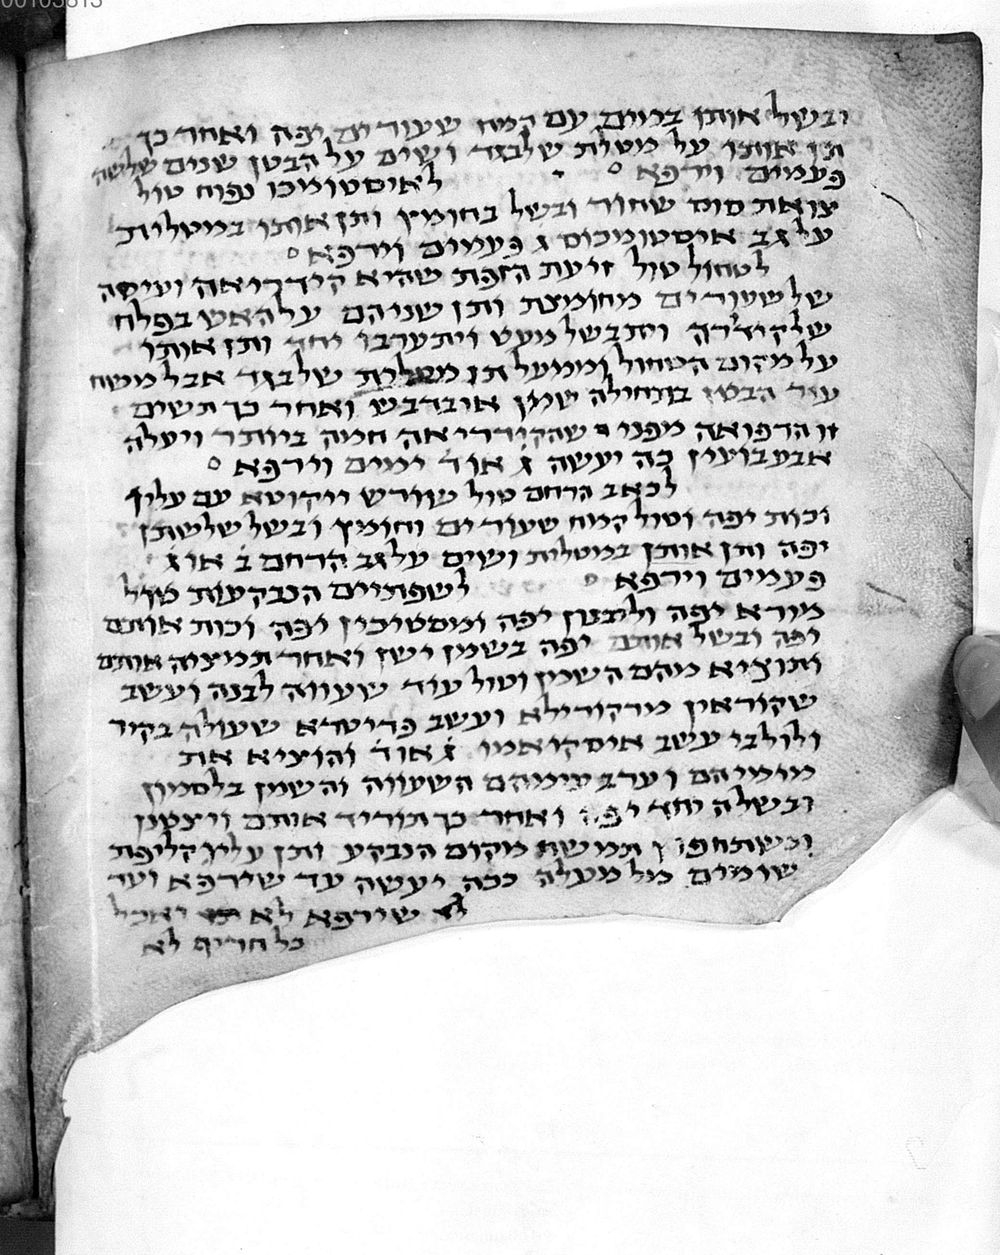 00105813
ובשל אותן במים עם קמח שעורים יפה ואחר כך
תן אותו על מטלית שלבגד ושים על הבטן שנים שלשה
פעמים וירפא לאיסטומכו נפוח טול
צואת סוס שחור ובשל בחומץ ותן אותו במטלית
על גב איסטומכוס ג פעמים וירפא
לטחול טול זיעת הזפת שהיא קידריאה ועיסה
של שעורים מחומצת ותן שניהם על האש בפלח
של קידרה ויתבשל מעט ויתערבו יחד ותן אותו
על מקום הטחול וממעל תן מטלית שלבגד אבל משח
עור הבטן בתחילה שמן אובדבש ואחר כך תשים
זו הרפואה מפני שהקידריאה חמה ביותר ויעלה
אבעבועין כה יעשה ג או ד ימים וירפא
לכאב הרחם טול שורש ייקוטא עם עליו
וכות יפה וטול קמח שעורים וחומץ ובשל שלשתן
יפה ותן אותן במטלית ושים על גב הרחם ב או ג
פעמים וירפא לשפתיים הנבקעות טול
מורא יפה וליבנון יפה ומסטיכין יפה וכות אותם
יפה ובשל אותם יפה בשמן ישן ואחר תמציה אותם
ותוציא מהם השמן וטול עוד שעווה לבנה ועשב
שקוראין מרקורילא ועשב פריטרא שעולה בקיר
ולולבי עשב איסקיאמו ג או ד והוציא את
מומיהם וערב עימהם השעווה והשמן בלסמון
ובשלה יחד יפה ואחר כך תוריד אותם ויצטנן
וכשתחפוץ תמשח מקום הנבקע ותן עליו קליפת
שומים מלמעלה ככה יעשה עד שירפא ועד
שירפא לא יאכל
כל חריף לא